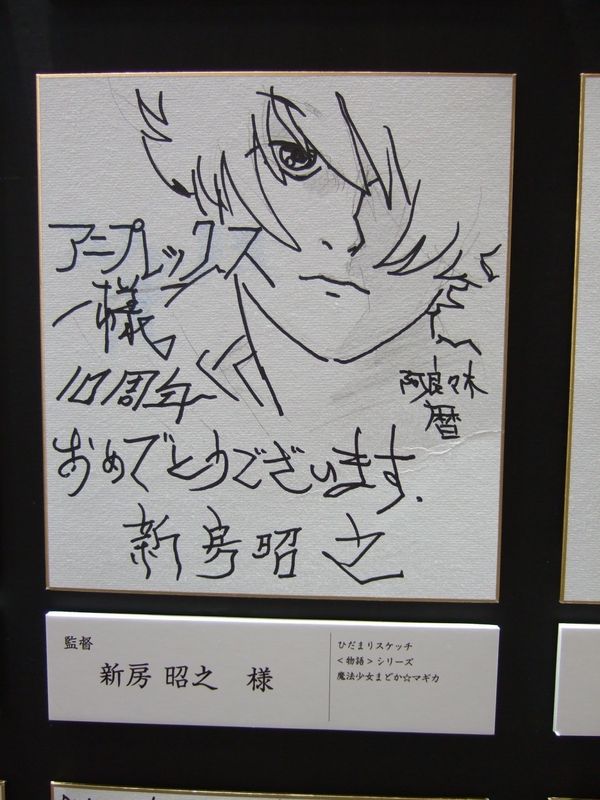 アニプレックス
様
10周年
おめでとうございます.
阿良々木
暦
新房昭之
監督
新房 昭之 様
ひだまりスケッチ
<物語>シリーズ
魔法少女まどか☆マギカ